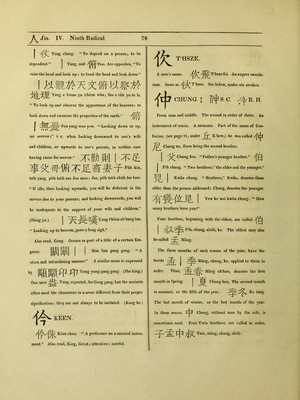 人 Jin. IV. Ninth Radical. 76
| 仗 Yang chang. "To depend on a person; to be
dependant." | Yang, and 俯 Foo. Are opposites, "To
raise the head and look up; to bend the head and look down."
| 以觀於天文俯以察於
地理 Yang e kwan yu t'heen wăn; foo e ch'a yu te le.
"To look up and observe the appearance of the heavens; to
look down and examine the properties of the earth." 俯
| 無憂 Foo yang woo yew. "Looking down or up,
no sorrow;" i. e. when looking downward to one's wife
and children, or upwards to one's parents, in neither case
having cause for sorrow. | 不動則 | 不足
事父母俯不足畜妻子 Pih kin,
tsih yang, pih tsŭh sze foo moo; foo, pih tsŭh chŭh tse tsze.
"If idle, then looking upwards, you will be deficient in the
service due to your parents; and looking downwards, you will
be inadequate to the support of your wife and children."
(Ming yu.) | 天長嘆 Yang t'hëen chang tan.
"Looking up to heaven, gave a long sigh."
Also read, Gang. Occurs as part of a title of a certain Em-
peror.
stern and intimidating manner." A similar sense is expressed
by 顒顒卬卬 Yung yung gang gang. (She king.)
One says Yang, repeated, for Gang gang; but the ancients
often used the characters in a sense different from their proper
signification; they are not always to be imitated. (Kang he.)
伶 KEEN.
"A performer on a musical instru-
ment." Also read, King, Great; attentive; careful.
佽 T'HSZE.
A man's name. 佽飛 T'hsze fei. An expert swords-
man. Same as 佽 T'hsze. See below, under six strokes.
仲 CHUNG. S. C. R. H.
From man and middle. The second in order of three. An
instrument of music. A surname. Part of the name of Con-
fucius, (see page 21, under 丘 K'hew;) he was called 仲
尼 Chung ne, from being the second brother.
| 父 Chung foo. "Father's younger brother." 伯
| Pih chung, "Two brothers; "the elder and the younger."
昆 | Kwăn chung. "Brothers;" Kwăn, denotes those
older than the person addressed; Chung, denotes the younger.
有幾位昆 | Yew ke wei kwăn chung. "How
many brothers have you?"
Four brothers, beginning with the eldest, are called 伯
| 叔季 Pih, chung, shŭh, ke. The eldest may also
be called 孟 Măng.
The three months of each season of the year, have the
words 孟 | 季 Măng, chung, ke, applied to them in
order. Thus, 孟春 Măng ch'hun, denotes the first
month in Spring. | 夏 Chung hea, The second month
in summer, or the fifth of the year. 季冬 Ke tung.
The last month of winter, or the last month of the year.
In these senses, 中 Chung, without man by the side, is
sometimes used. Four Twin brothers, are called in order,
子孟中叔 Tsze, măng, chung, shŭh.